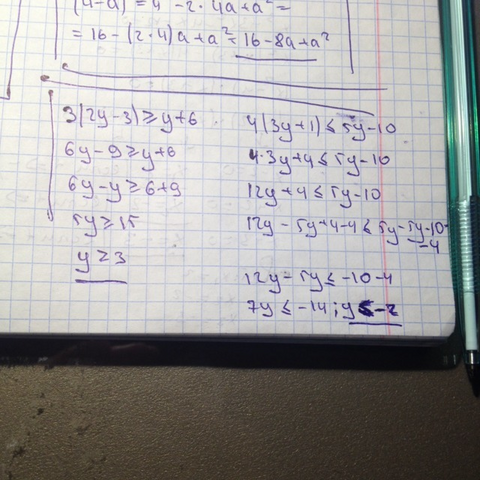 (4-a) = 4 - 2·4a+a² =
= 16-(2·4)a+a²=16-8a+a²
3(2y-3)≥y+6
6y-9≥y+6
6y-y≥6+9
5y≥15
y≥3
4(3y+1)≤5y-10
4·3y+4≤5y-10
12y+4≤5y-10
12y-5y+4-4≤5y-5y-10
-4
12y-5y≤-10-4
7y≤-14; y≤-2